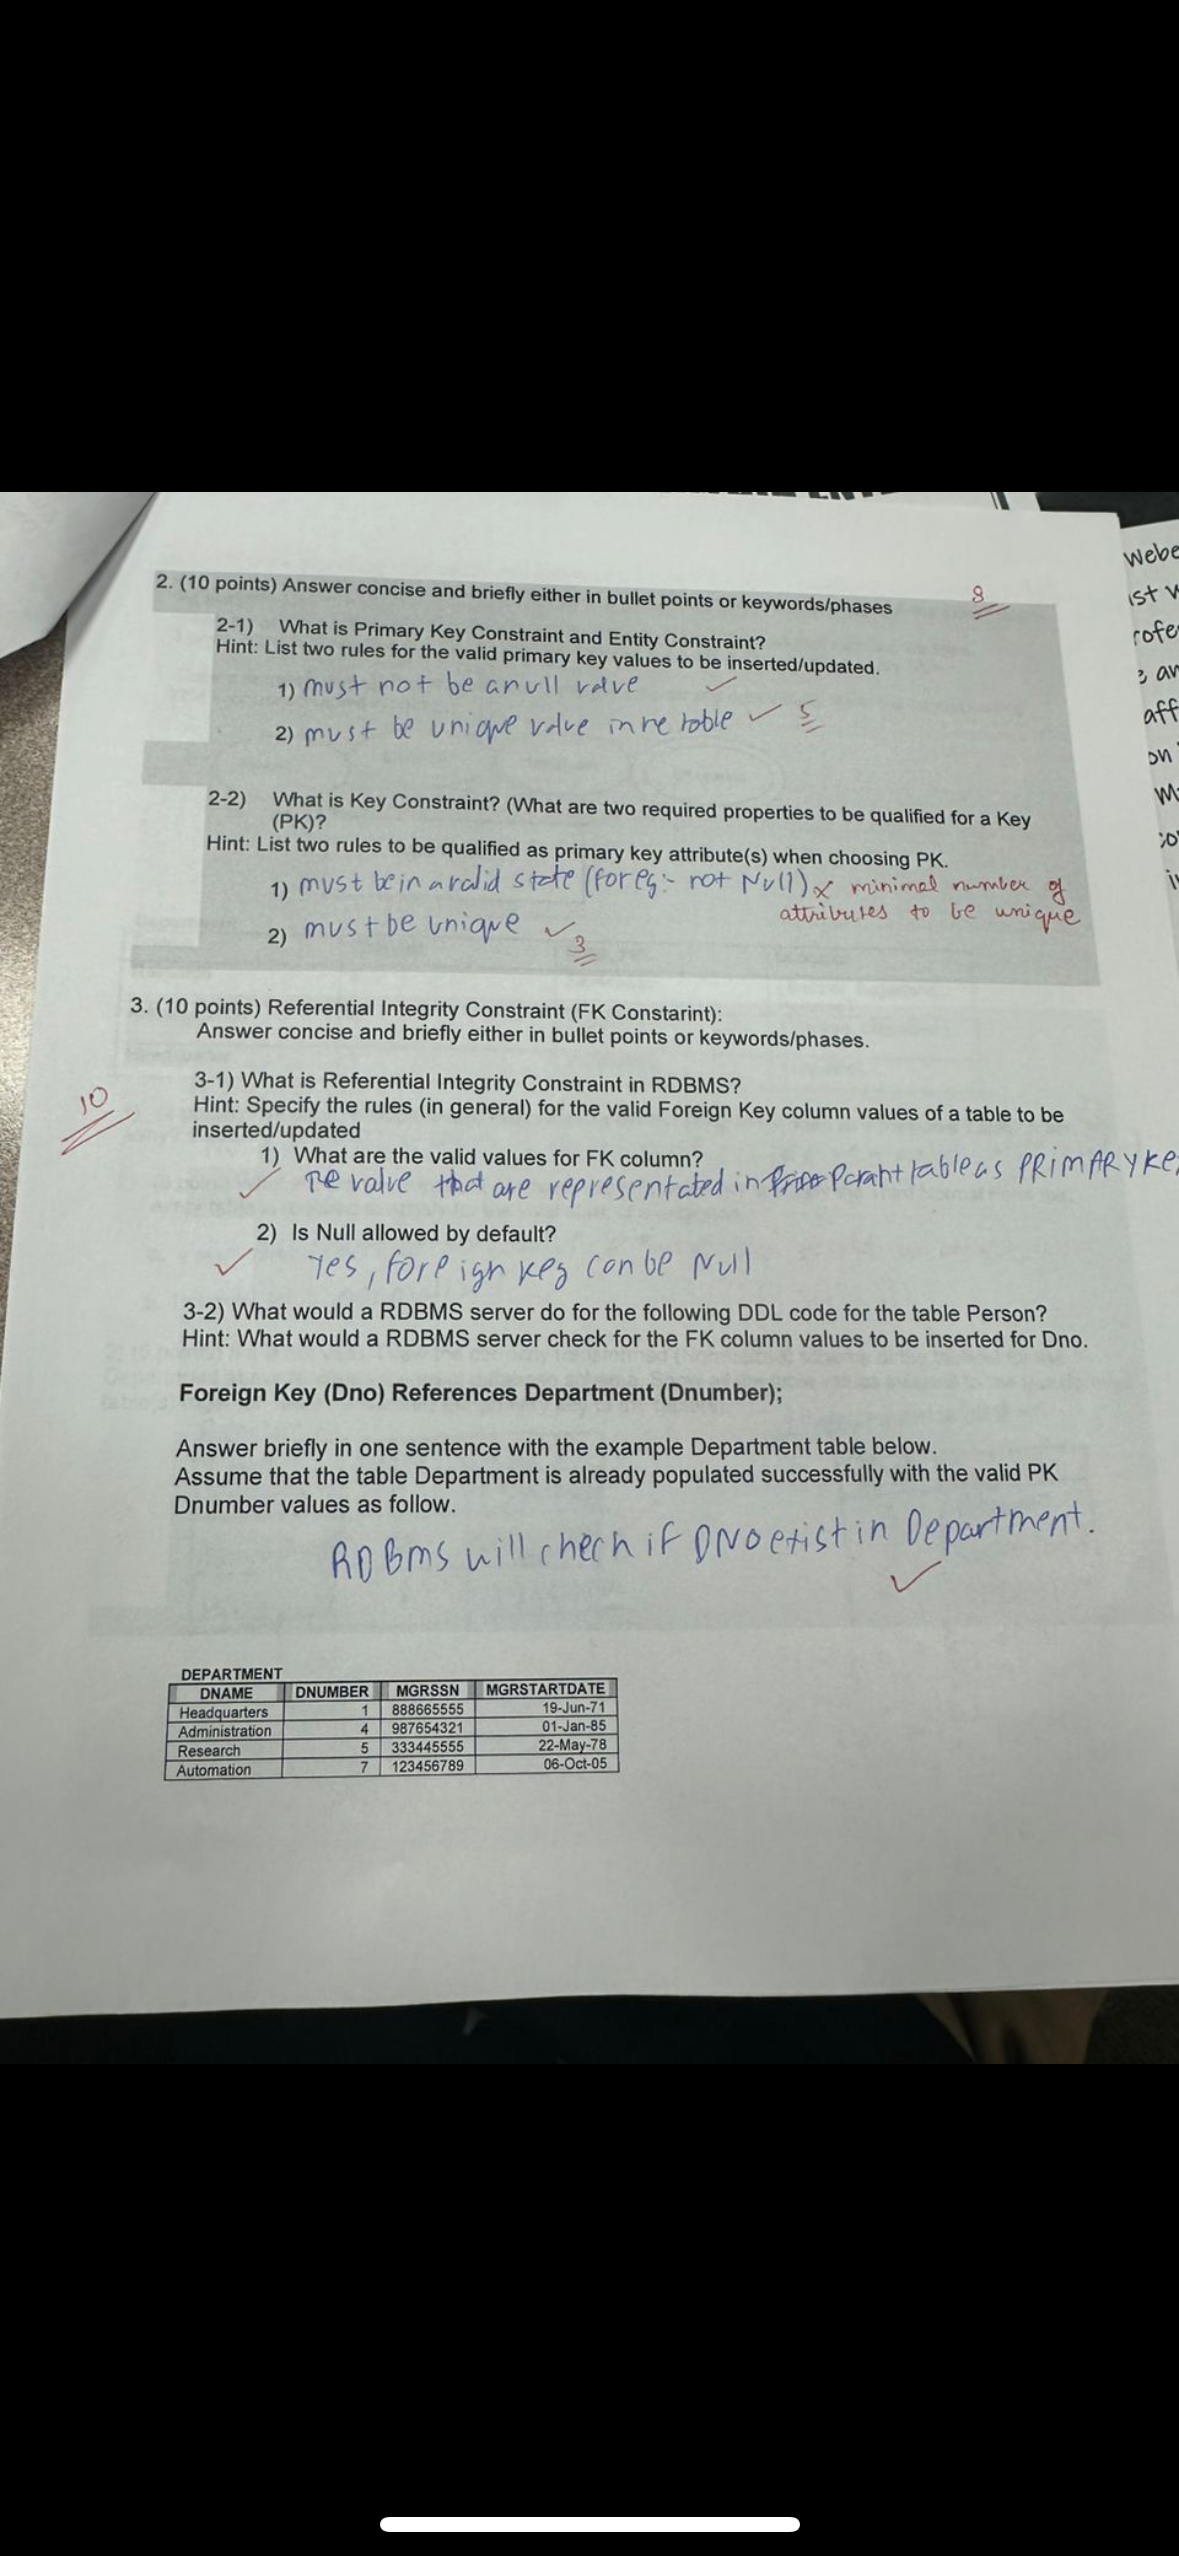 2. (10 points) Answer concise and briefly either in bullet points or keywords/phases
8
2-1) What is Primary Key Constraint and Entity Constraint?
Hint: List two rules for the valid primary key values to be inserted/updated.
1) must not be a null value
2) must be unique value in the table
5
2-2) What is Key Constraint? (What are two required properties to be qualified for a Key
(PK)?
Hint: List two rules to be qualified as primary key attribute(s) when choosing PK.
1) must be in a valid state (for eg:- not Null) x minimal number of
attributes to be unique
2) must be unique
3
3. (10 points) Referential Integrity Constraint (FK Constarint):
Answer concise and briefly either in bullet points or keywords/phases.
10
3-1) What is Referential Integrity Constraint in RDBMS?
Hint: Specify the rules (in general) for the valid Foreign Key column values of a table to be
inserted/updated
1) What are the valid values for FK column?
The value that are representated in Paraht table as PRIMARY KE
2) Is Null allowed by default?
Yes, foreign key can be Null
3-2) What would a RDBMS server do for the following DDL code for the table Person?
Hint: What would a RDBMS server check for the FK column values to be inserted for Dno.
Foreign Key (Dno) References Department (Dnumber);
Answer briefly in one sentence with the example Department table below.
Assume that the table Department is already populated successfully with the valid PK
Dnumber values as follow.
RDBMS will check if DNO exist in Department.
DEPARTMENT
DNAME DNUMBER MGRSSN MGRSTARTDATE
Headquarters 1 888665555 19-Jun-71
Administration 4 987654321 01-Jan-85
Research 5 333445555 22-May-78
Automation 7 123456789 06-Oct-05
Webe
ist
rofe
an
aff
on
M